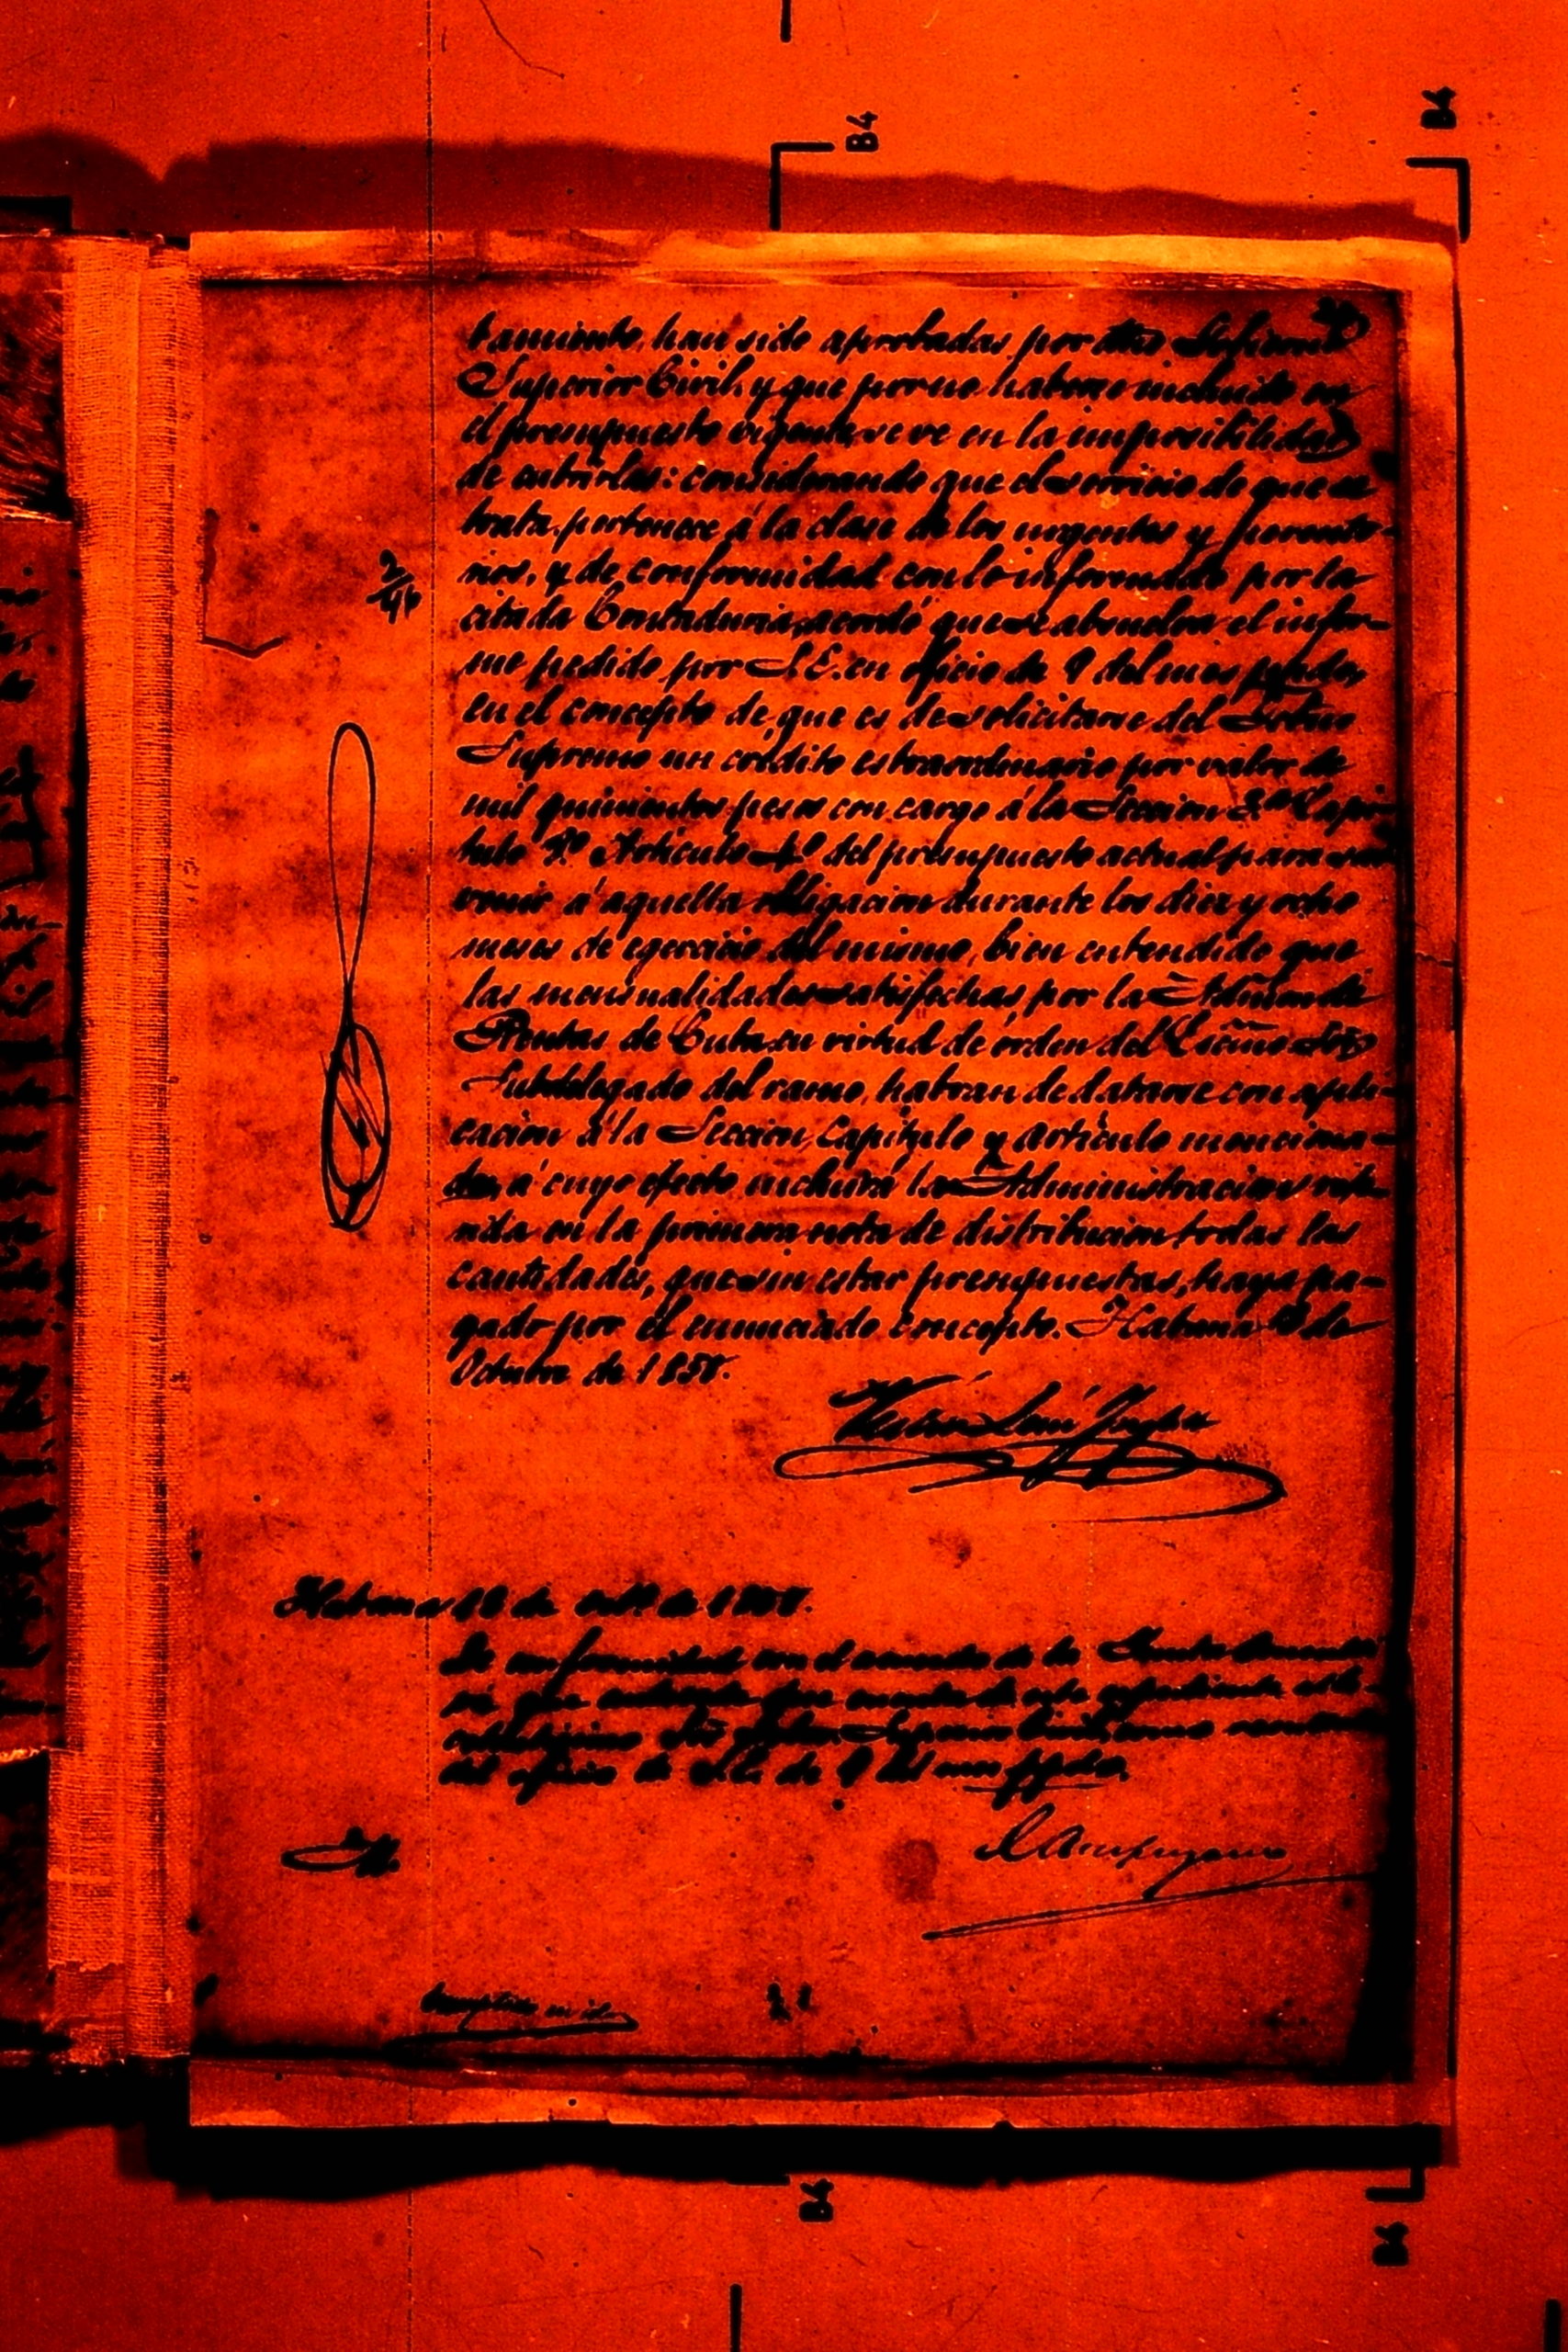 B4
B4
tamiento, han sido aprobadas por el Gobierno
Superior Civil, y que por no haberse incluido en
el presupuesto vigente, se ve en la imposibilidad
de cubrirlas: considerando que el servicio de que se
trata, pertenece á la clase de los urgentes y perento-
rios, y de conformidad con lo informado por la
citada Contaduria, acordó que se absuelva el infor-
me pedido por S.E. en oficio de 9 del mes ppdo,
en el concepto de que es de solicitarse del Gobno
Supremo un crédito estraordinario por valor de
mil quinientos pesos con cargo á la Seccion 3ª Capi-
tulo 3º Articulo 4º del presupuesto actual para sub-
venir á aquella obligacion durante los diez y ocho
meses de egercicio del mismo, bien entendido que
las mensualidades satisfechas, por la Admon de
Rentas de Cuba en virtud de órden del Escmo Sor
Subdelegado del ramo, habran de datarse con apli-
cacion á la Seccion, Capitulo y artículo menciona-
dos, á cuyo efecto incluirá la Administracion refe-
rida en la primera nota de distribucion todas las
cantidades, que sin estar presupuestas, haya pa-
gado por el enunciado concepto. Habana de
Octubre de 1858.
Habana 18 de de 1858.
De conformidad con el acuerdo de la Junta
de este espediente
Superior Civil como
del oficio de de 9 del mes ppdo.
B4
B4